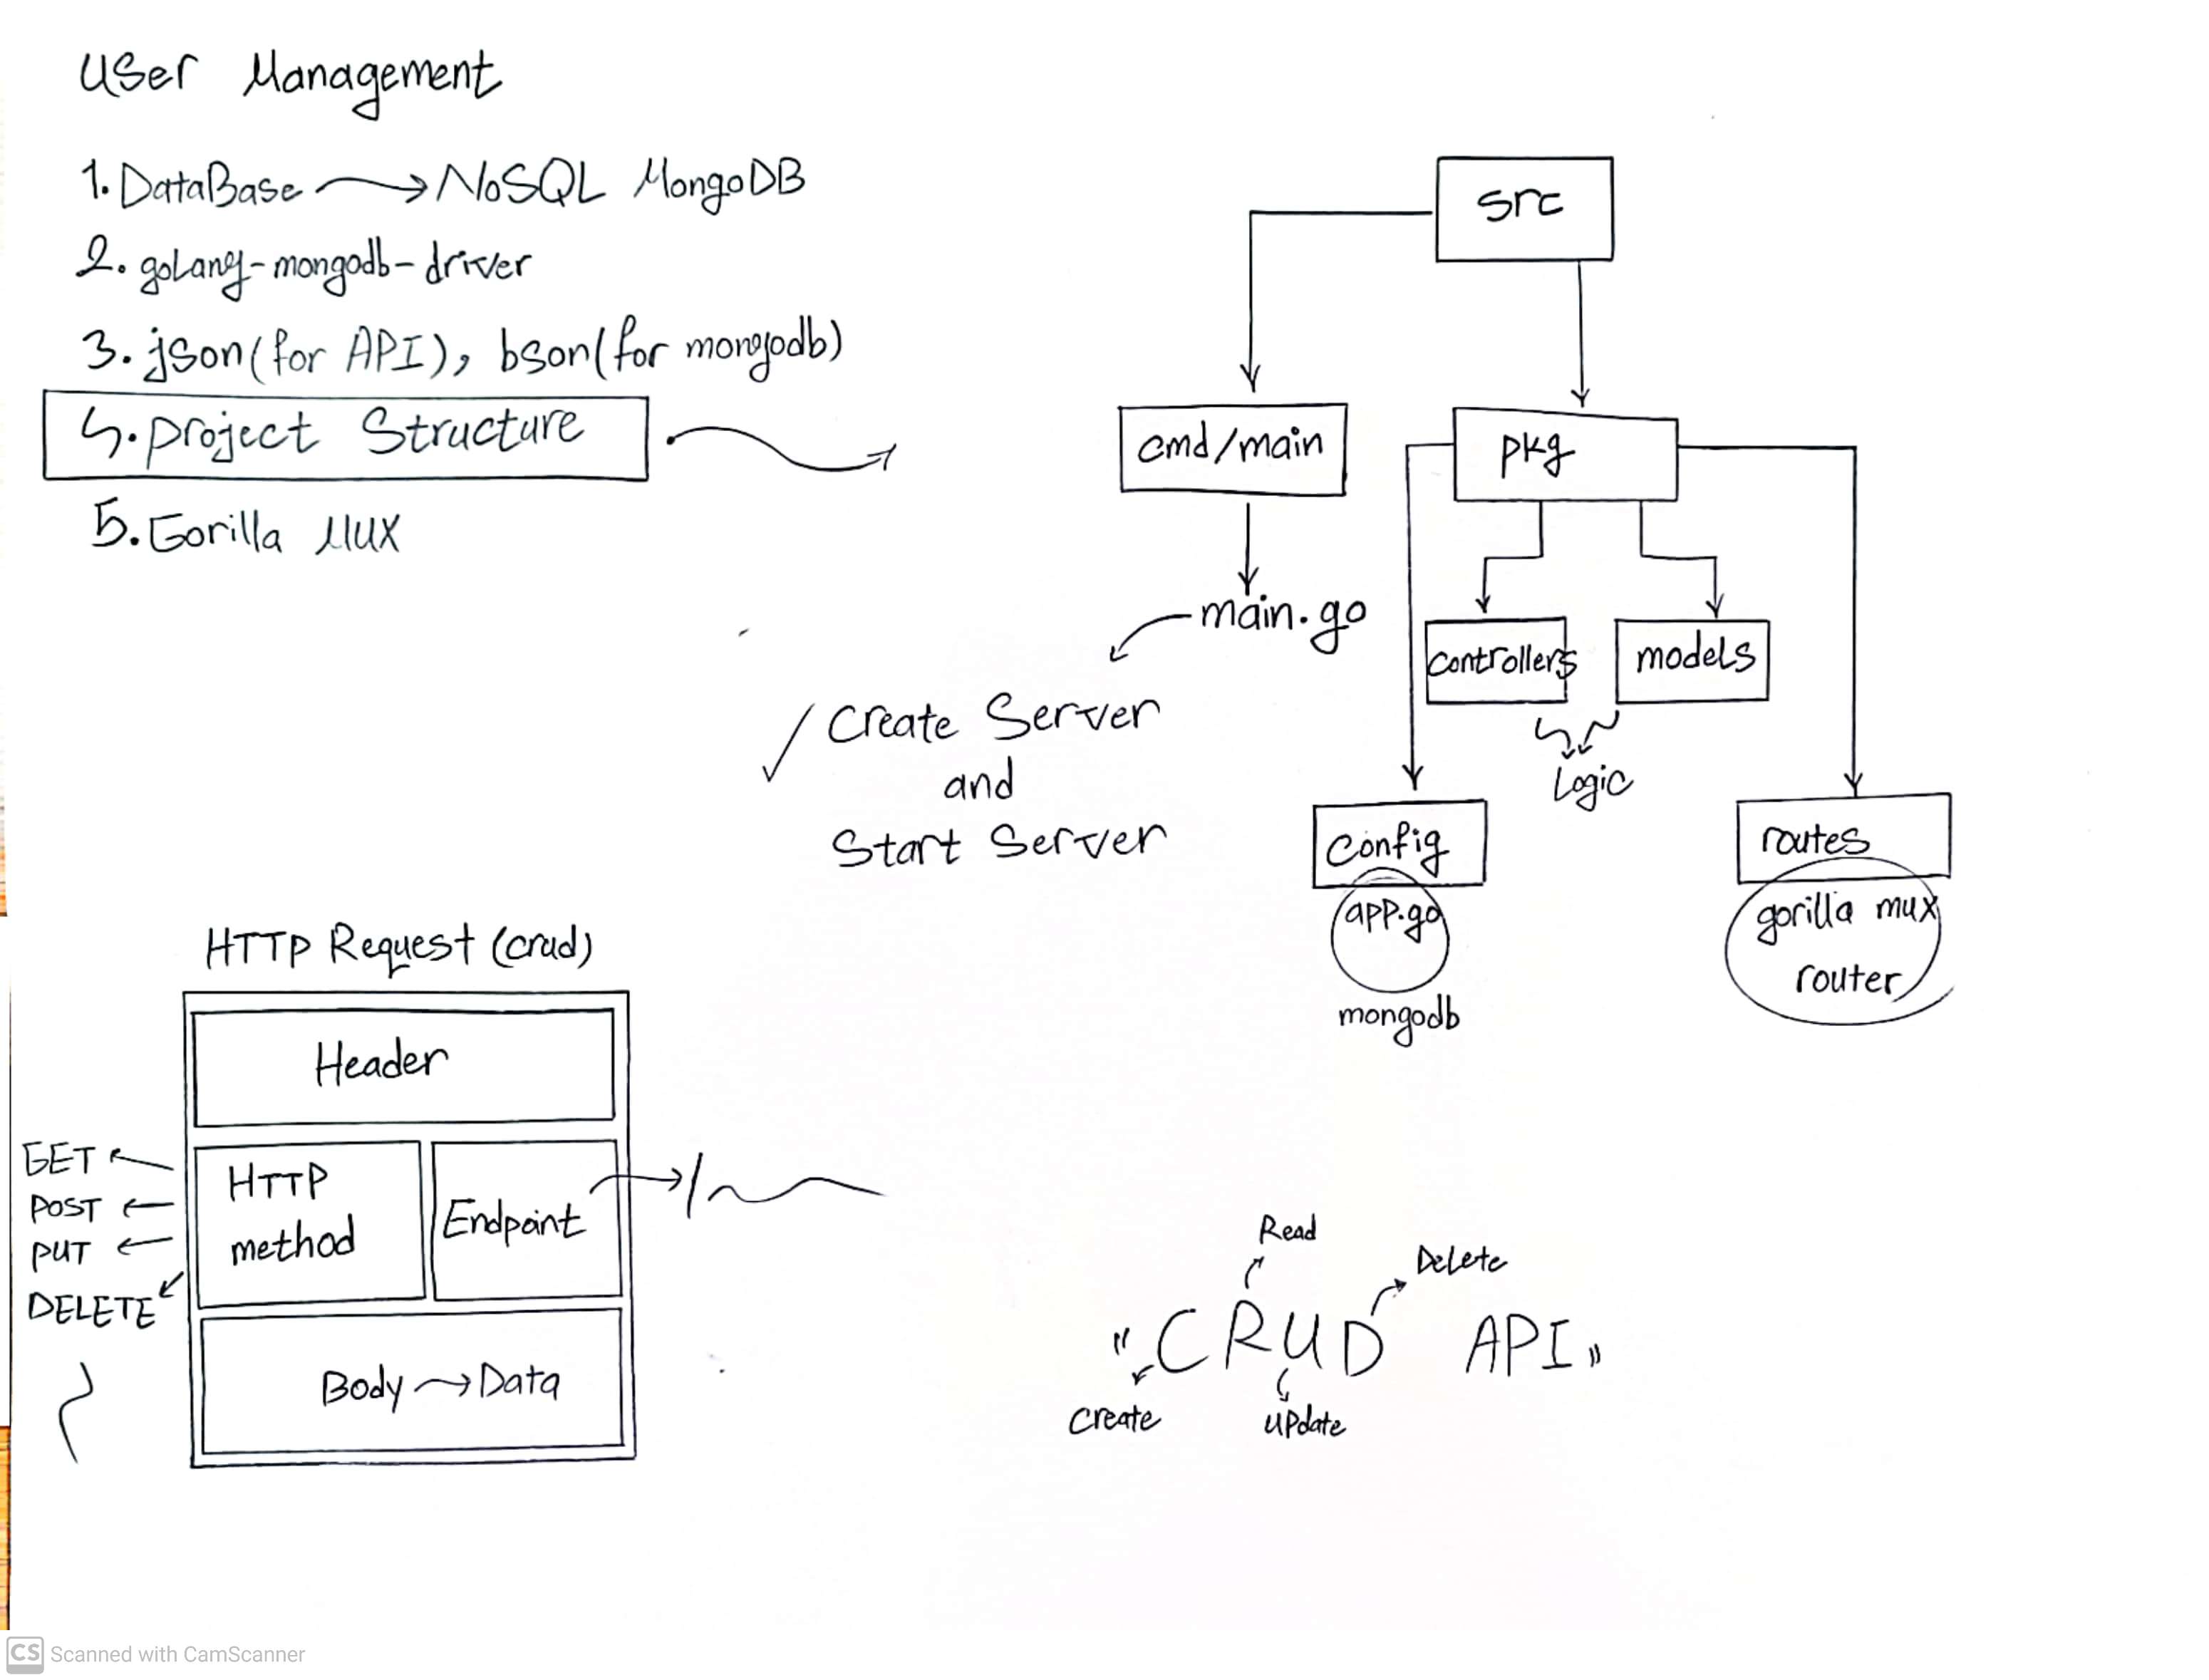 User Management
1. DataBase → NoSQL MongoDB
2. golang-mongodb-driver
3. json(for API), bson(for mongodb)
4. project Structure
5. Gorilla Mux
src
cmd/main
pkg
main.go
controllers
models
Logic
Create Server
and
Start Server
config
app.go
mongodb
routes
gorilla mux
router
HTTP Request (crud)
Header
GET
POST
PUT
DELETE
HTTP
method
Endpoint
Body → Data
Read
Delete
"CRUD API"
Create
update
CS Scanned with CamScanner